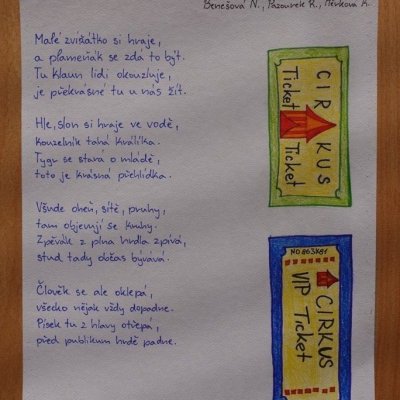 Benešová N., Pazourek R., Měrková K.
Malé zvířátko si hraje,
a plameňák se zdá to být.
Tu klaun lidi okouzluje,
je překrásné tu u nás žít.
Hle, slon si hraje ve vodě,
kouzelník tahá králíka.
Tygr se stará o mládě,
toto je krásná přehlídka.
Všude oheň, sítě, pruhy,
tam objevují se kruhy.
Zpěvák z plna hrdla zpívá,
stud tady občas bývává.
Člověk se ale oklepá,
všecko nějak vždy dopadne.
Písek tu z hlavy otřepá,
před publikum hrdě padne.
CIRKUS
Ticket Ticket
NO 863K81
CIRKUS
VIP Ticket